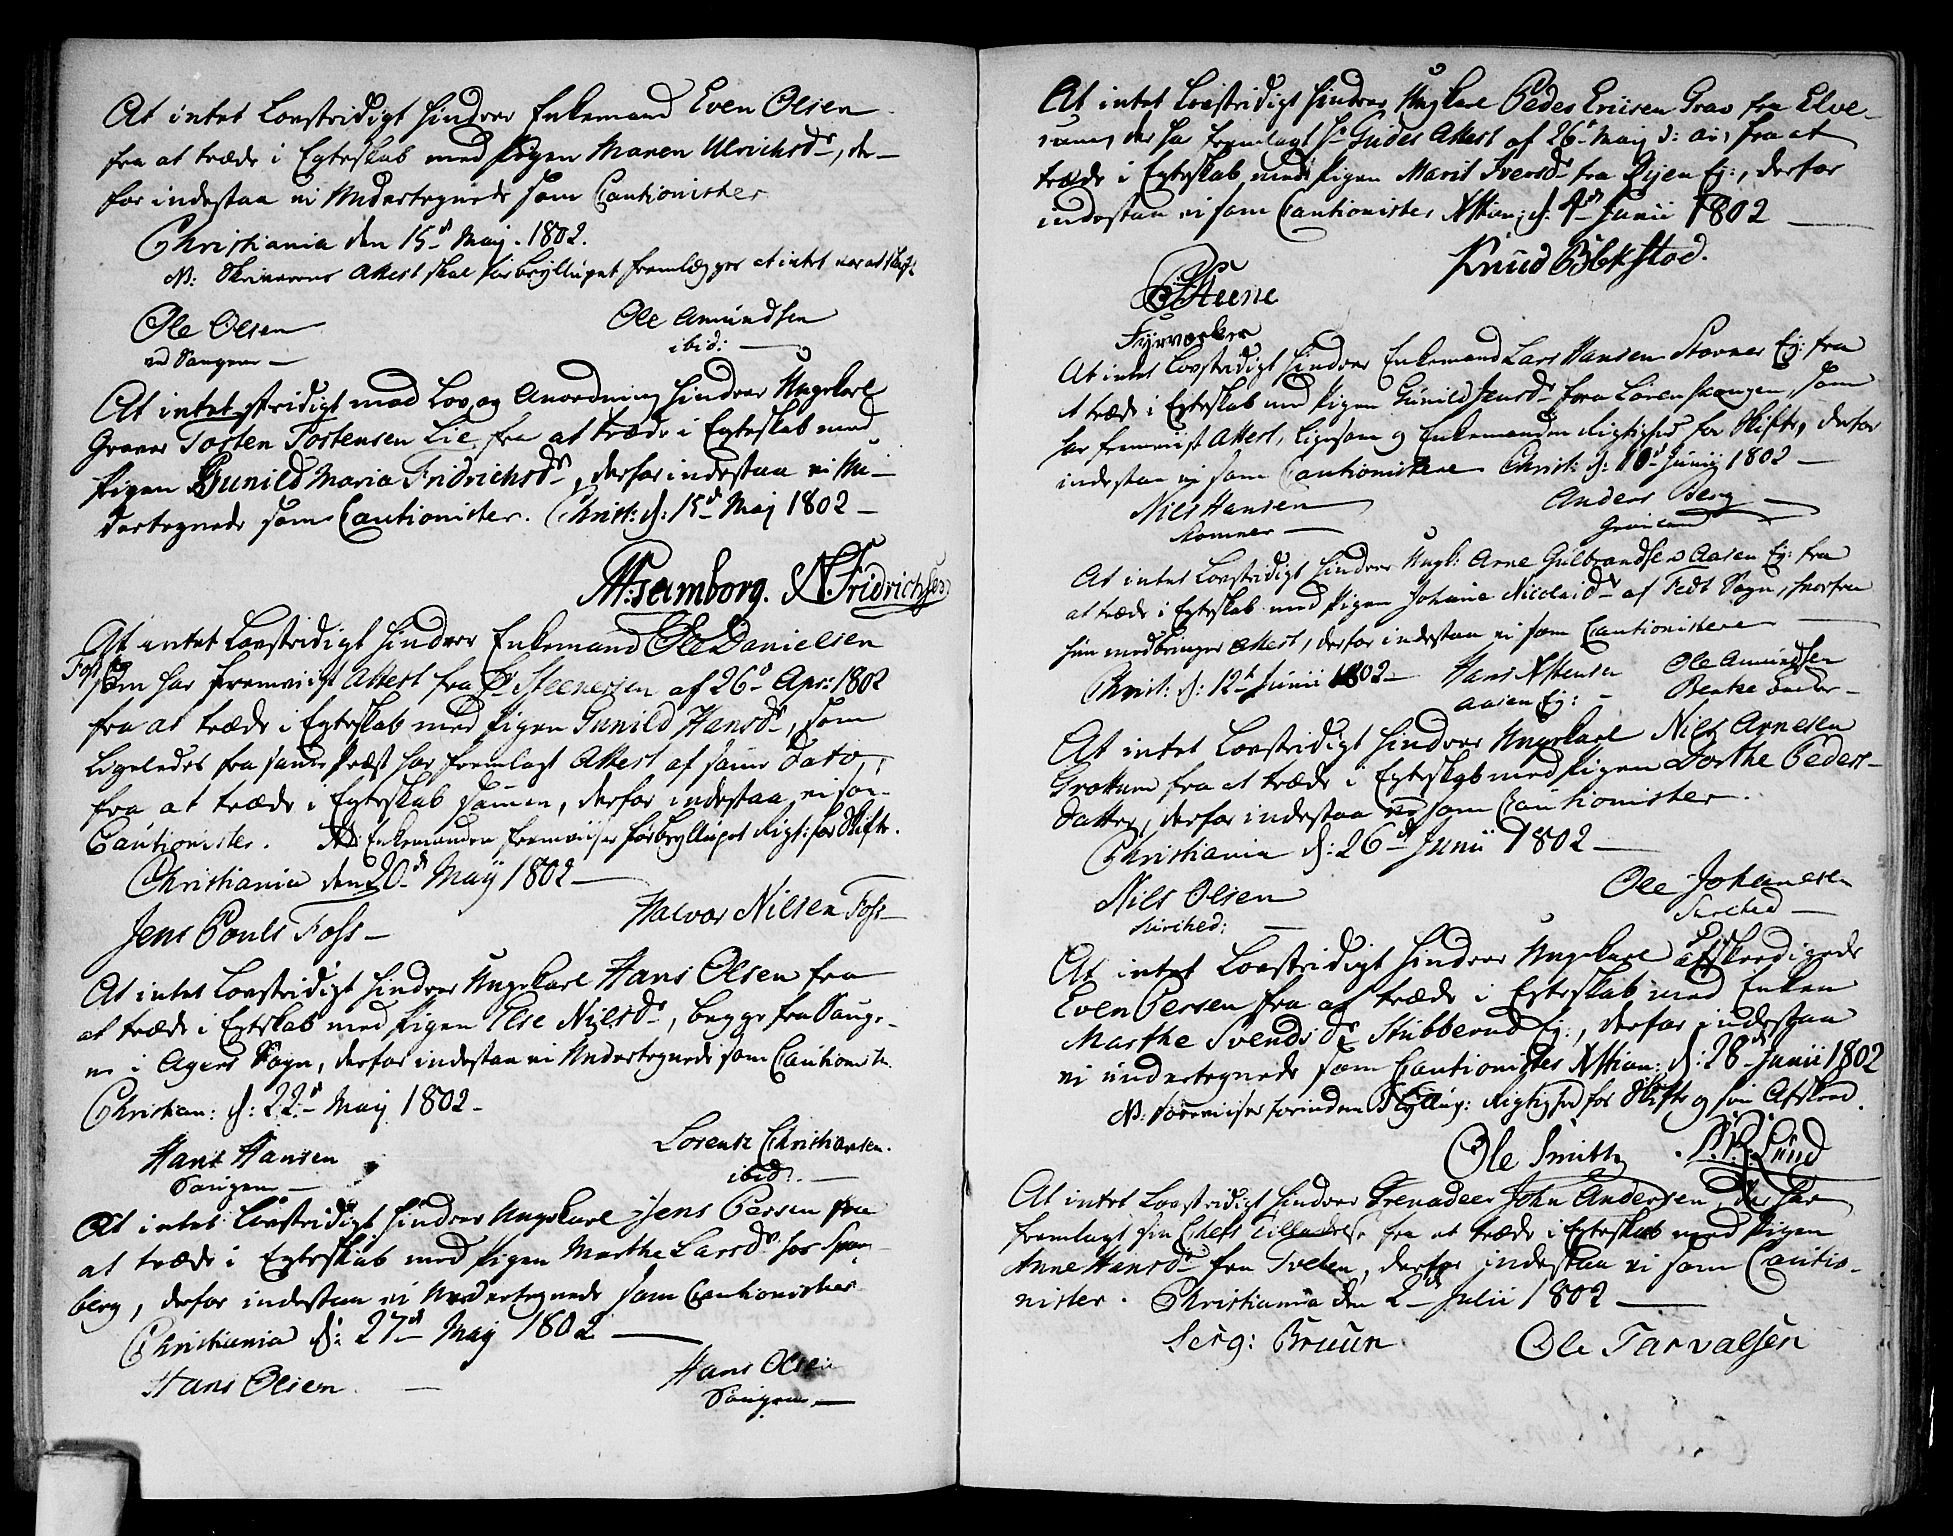 At intet Lovstridigt hindrer Enkemand Even Olsen
fra at træde i Egteskab med Pigen Maren Ulrichsdr, der-
for indestaa vi Undertegnede som Cautionister
Christiania den 15d Maj. 1802.
NB: Skriverens Attest skal før brylluppet fremlægges at intet var at skift
Ole Olsen
ved Saugene
Ole Amundsen
ibid:
At intet stridigt mod Lov og Anordning hindrer Ungekarl
Graver Tosten Tostensen Lie fra at træde i Egteskab med
Pigen Gunild Maria Fridrichsdr, derfor indestaa vi Un-
dertegnede som Cautionister. Christ: d: 15d Maj 1802
N. Fridrichsen
At intet Lovstridigt hindrer Enkemand Ole Danielsen
Foss som har fremviist Attest fra Hr Steenersen af 26d Apr: 1802
fra at træde i Egteskab med Pigen Gunild Hansdr, som
Ligeledes fra samme Præst har fremlagt Attest af samme Dato,
fra at træde i Egteskab sammen, derfor indestaa vi som
Cautionister. NB Enkemanden fremviiser før brylluppet Rigt: for Skifte.
Christiania den 20d Maij 1802
Jens Pouls Foss
Halvor Nilsen Foss
At intet Lovstridigt hindrer Ungekarl Hans Olsen fra
at træde i Egteskab med Pigen Else Nilsdr, begge fra Sauge-
ne i Agers Sogn, derfor indestaa vi Undertegnede som Cautionister
Christian: d: 22d Maij 1802
Hans Hansen
Saugene
Lorentz Christiansen.
ibid.
At intet Lovstridigt hindrer Ungekarl Jens Persen fra
at træde i Egteskab med Pigen Marthe Larsdr hos Spar-
berg, derfor indestaa vi Undertegnede som Cautionister
Christiania d: 27d Maij 1802
Hans Olsen
Hans Olsen
Saugene
At intet Lovstridigt hindrer Ungkarl Peder Eriksen Grav fra Elve-
rum, der har fremlagt Hr Gudes Attest af 26d Maij d: a: fra at
træde i Egteskab med Pigen Marit Iversdr fra Ryen Ej:, derfor
indestaa vi som Cautionister Xstian: d: 4d Junii 1802
Knud Blekstad.
Steene
Fyrværker
At intet Lovstridigt hindrer Enkemand Lars Hansen Stovner Ej: fra
at træde i Egteskab med Pigen Gunild Jensdr fra Lørenskougen, som
har fremviist Attest, Ligesom og Enkemanden Rigtighed for Skifte, derfor
indestaa vi som Cautionistere Christ: d: 10d Junij 1802
Nils Hansen
Stovner
Anders Berg
Grønland
At intet Lovstridigt hindrer Ungk: Arne Gulbrandsen Aasen Ej: fra
at træde i Egteskab med Pigen Johanne Nicolaidr af Fedt Sogn, hvorfra
hun medbringer Attest, derfor indestaa vi som Cautionistere
Christ: d: 12d Junii 1802
Hans Xstensen
Aasen Ej:
Ole Amundsen
At intet Lovstridigt hindrer Ungekarl Nils Arnesen
Grøttum fra at træde i Egteskab med Pigen Dorthe Peders-
datter, derfor indestaa vi som Cautionister.
Christiania d: 26d Junii 1802
Nils Olsen
Ole Johanesen
At intet Lovstridigt hindrer Ungekarl afskeedigede
Even Persen fra at træde i Egteskab med Enken
Marthe Svendsdr Stubberud Ej:, derfor indestaa
vi undertegnede som Cautionister Xstian: d: 28d Junii 1802
NB: foreviiser forinden Bryllup: Rigtighed for Skifte og sin Afskeed.
Ole Smith
Lund
At intet Lovstridigt hindrer Grenadeer John Andersen, der har
fremlagt sin Chefs Tilladelse fra at træde i Egteskab med Pigen
Anne Hansdr fra Tveten, derfor indestaa vi som Cautio-
nister. Christiania den 2d Julii 1802
Serg: Bruun.
Ole Tarvalsen